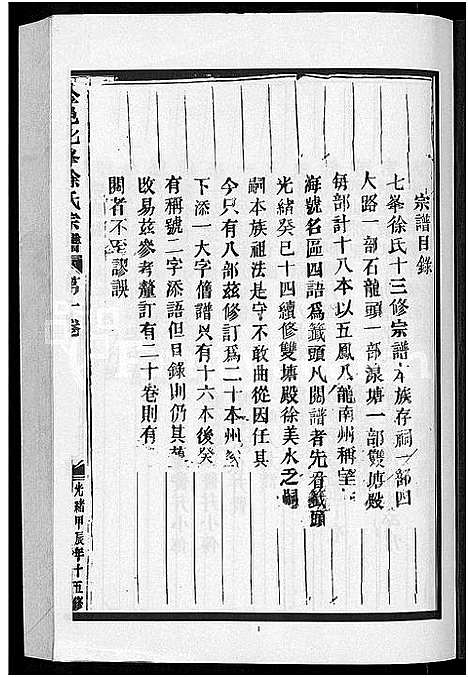 宗譜目錄
七峯徐氏十三修宗譜本族存祠一部四
大路一部石龍頭一部滾塘一部雙塘殿
每部計十八本以五鳳八龍南州稱望
海號名區四語爲籤頭凡閱譜者先看籤頭
光緒癸巳十四續修雙塘殿徐美水之嗣
嗣本族祖法是守不敢曲從因任其
今只有八部茲修訂爲二十本州
下添一大字舊譜只有十六本後癸
有稱號二字添語但目錄則仍其舊
改易茲參考釐訂有二十卷則有
閱者不至謬誤
金邑七峯徐氏宗譜 第一卷
光緒甲辰年十五修